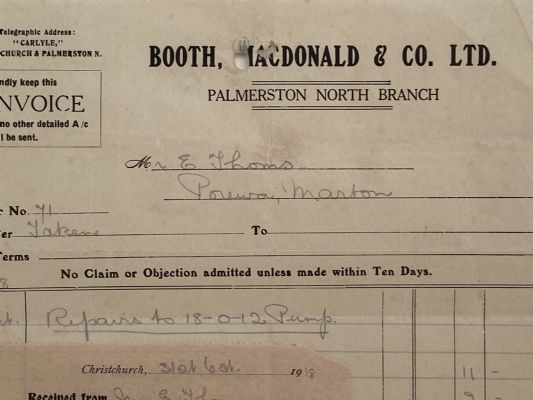 Telegraphic Address:
"CARLYLE,"
CHURCH & PALMERSTON N.
BOOTH, MACDONALD & CO. LTD.
PALMERSTON NORTH BRANCH
ndly keep this
NVOICE
no other detailed A/c
l be sent.
Mr E Thoms
Porewa, Marton
r No. 71
er Taken To
Terms
8
No Claim or Objection admitted unless made within Ten Days.
ct. Repairs to 18-0-12 Pump.
Christchurch, 31st Oct. 1918
11 -
Received from Mr E Th